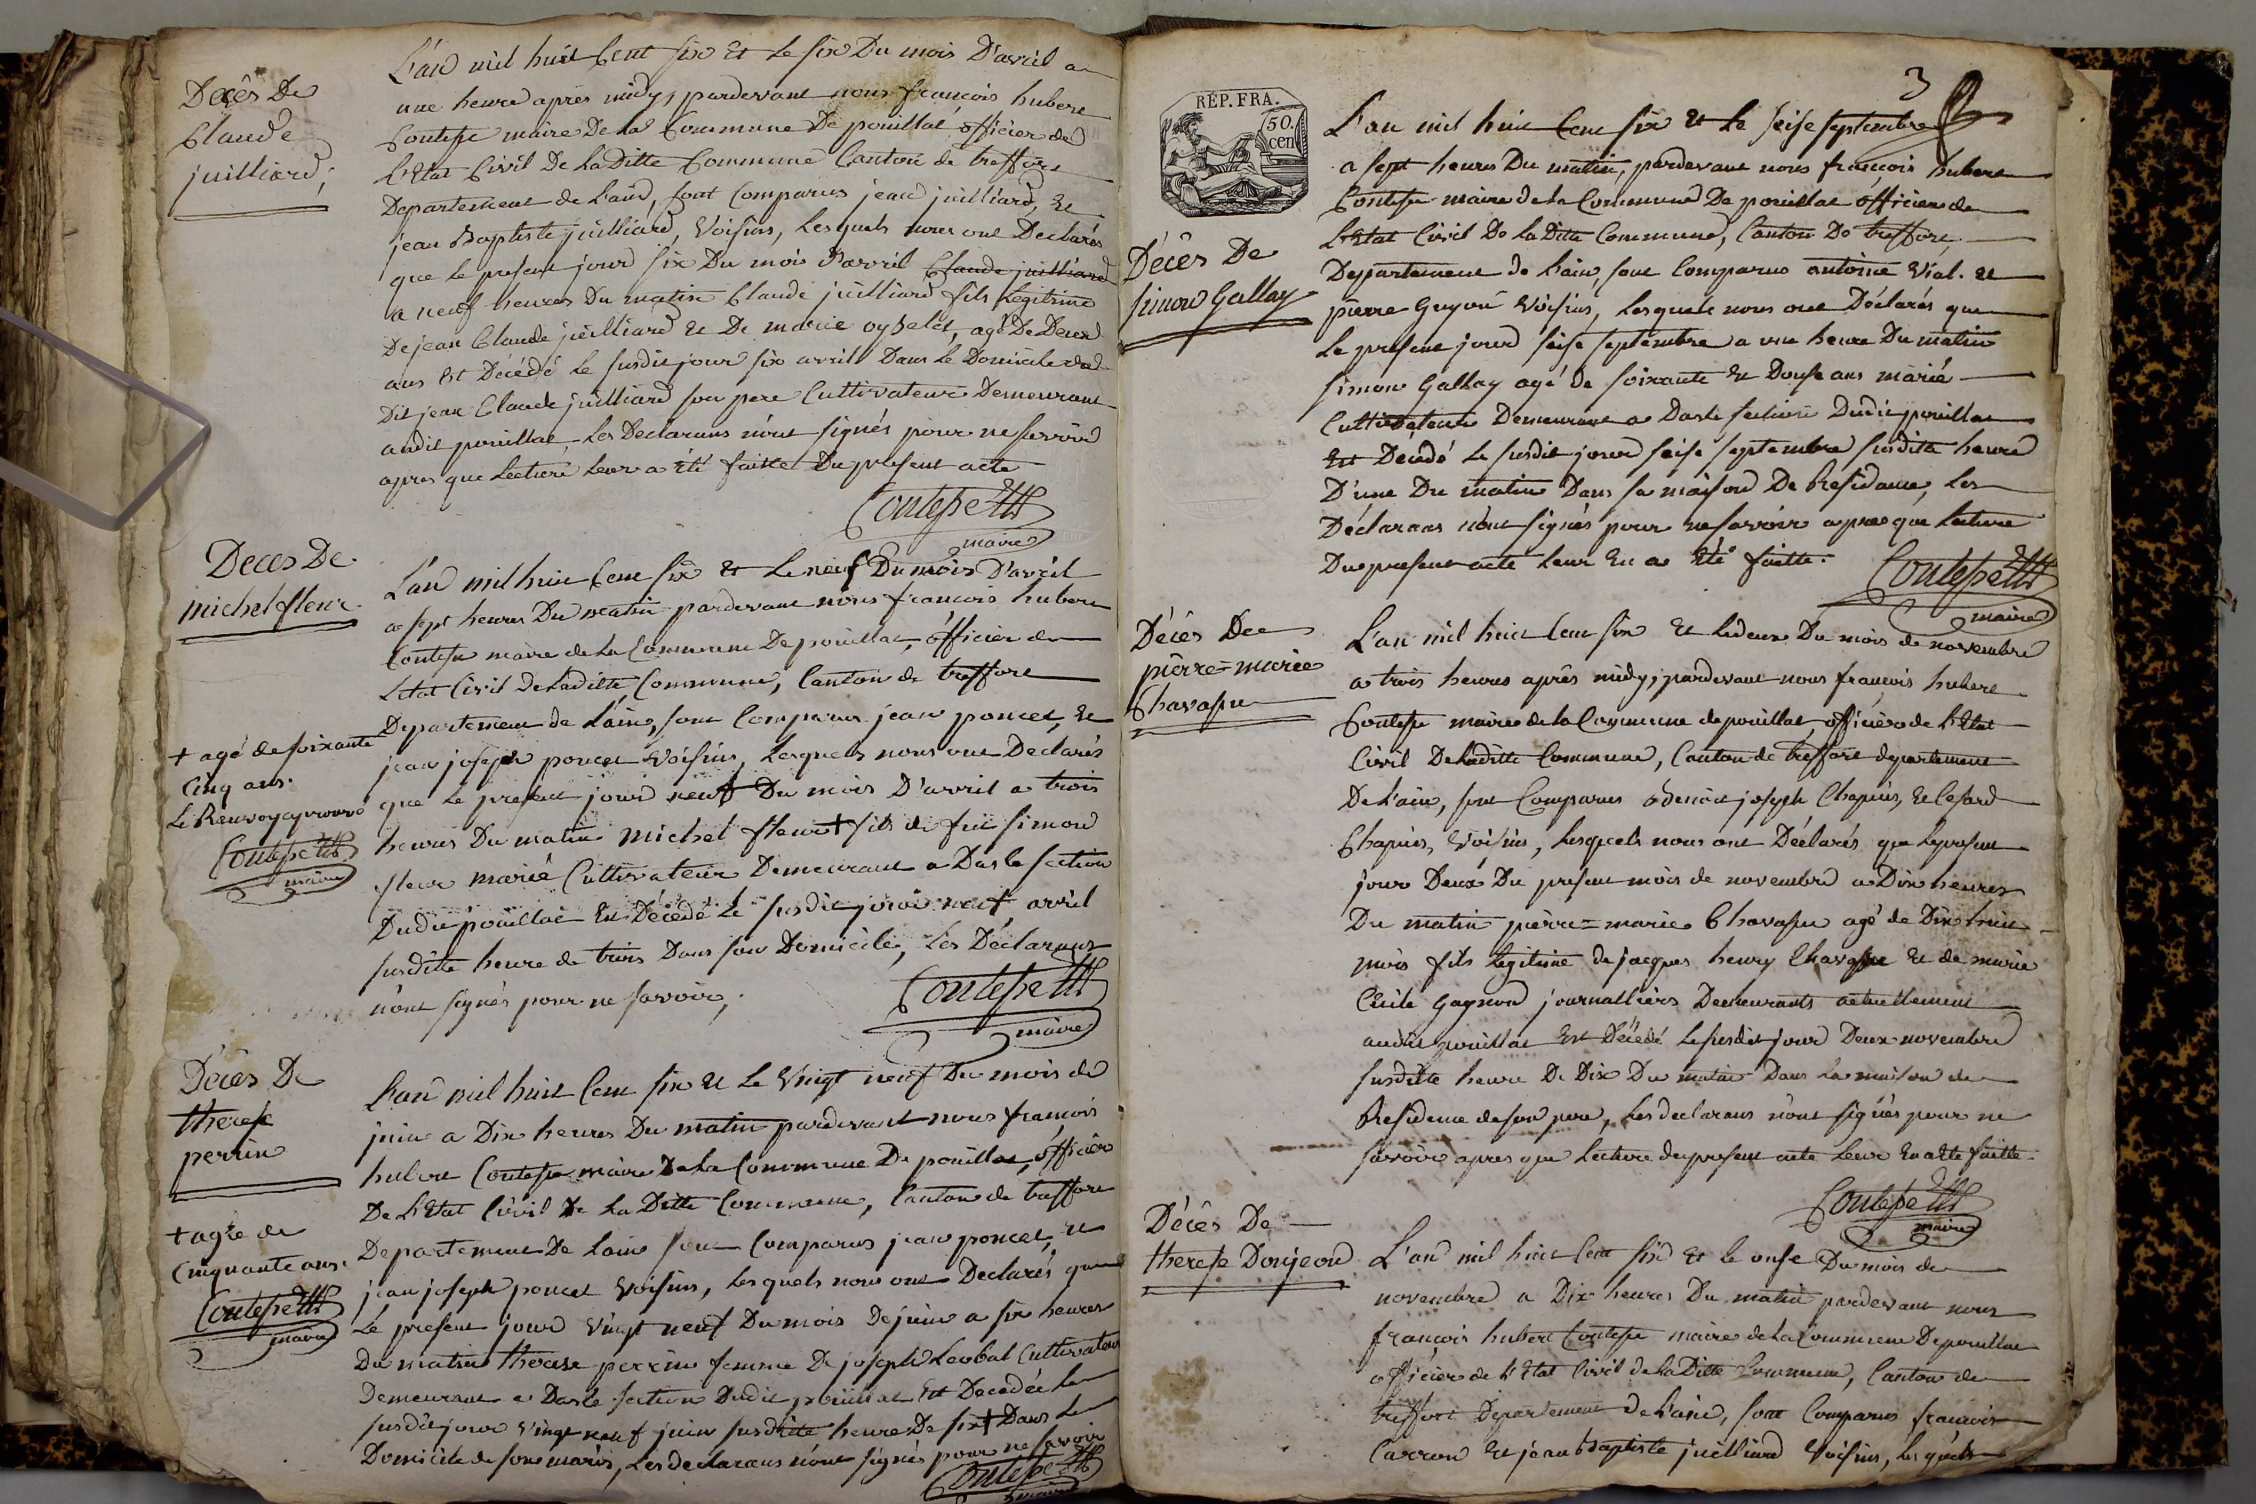 Décès De
Claude
juilliard;
L'an mil huit Cent six Et le six Du mois D'avril a
une heure après midy, pardevant nous françois hubert
Contesse maire De la Commune De pouillat officier de
L'Etat Civil De La Ditte Commune Canton de treffort
Departement de L'ain, sont Comparus jean juilliard, Et
jean Baptiste juilliard, Voisins, Lesquels nous ont Declarés
que le present jour six Du mois D'avril Claude juilliard
a neuf heures Du matin Claude juilliard fils Legitime
De jean Claude juilliard Et De marie oyselet, agé De Deux
ans Est Décédé Le susdit jour six avril Dans Le Domicile du
Dit jean Claude juilliard son pere Cultivateur Demeurant
audit pouillat Les Declarans n'ont signés pour ne savoir
apres que Lecture Leur a Eté faitte Du present acte
Contesse
maire
Deces De
michel fleur
L'an mil huit Cent six Et Le neuf Du mois D'avril
a sept heures Du matin pardevant nous francois hubert
Contesse maire de La Commune De pouillat, officier de
L'etat Civil De Laditte Commune, Canton de treffort
Departement de L'ain, sont Comparus jean poncet, Et
jean joseph poncet Voisins, Lesquels nous ont Declarés
que Le present jour neuf Du mois D'avril a trois
heures Du matin michel fleur + fils de feu simon
fleur marié Cultivateur Demeurant a Dasle section
Dudit pouillat Est Décédé Le susdit jour neuf avril
susditte heure de trois Dans son Domicile, Les Déclarans
n'ont signés pour ne savoir;
+ agé de soixante
Cinq ans.
Le Renvoy aprouvé
Contesse
maire
Contesse
maire
Décès De
therese
perrin
L'an mil huit Cent six Et Le Vingt neuf Du mois de
juin a Dix heures Du matin pardevant nous françois
hubert Contesse maire De La Commune De pouillat, officier
De L'Etat Civil De La Ditte Commune, Canton de treffort
Departement De L'ain sont Comparus jean poncet, et
jean joseph poncet Voisins, Lesquels nous ont Declarés que
Le present jour Vingt neuf Du mois De juin a six heures
Du matin therese perrin femme De joseph Leobal Cultivateur
Demeurant a Dasle section Dudit pouillat Est Decedée Le
susdit jour Vingt neuf juin susditte heure De six + Dans Le
Domicile de son maris, Les declarans n'ont signés pour ne savoir
+ agée de
Cinquante ans.
Contesse
maire
Contesse
maire
3
RÉP. FRA.
50.
cen
Décès De
simon Gallay
L'an mil huit Cent six Et Le seise septembre
a sept heures Du matin, pardevant nous françois hubert
Contesse maire de La Commune De pouillat officier de
L'Etat Civil De La Ditte Commune, Canton De treffort
Departement de L'ain, sont Comparus antoine Vial. et
pierre Guyon Voisins, Lesquels nous ont Déclarés que
Le present jour seise septembre a une heure Du matin
simon Gallay agé de soixante Et Douse ans marié
Cultivateur Demeurant a Dasle section Dudit pouillat
Est Décédé Le susdit jour seise septembre susditte heure
D'une Du matin Dans sa maison De Residance, Les
Déclarans n'ont signés pour ne savoir apres que Lecture
Du present acte Leur En a Eté faitte.
Contesse
maire
Décès De
pierre=marie
Chavasse
L'an mil huit Cent six Et Le deux Du mois de novembre
a trois heures après midy, pardevant nous françois hubert
Contesse maire de la Commune de pouillat officier de L'Etat
Civil De Laditte Commune, Canton de treffort departement
De L'ain, sont Comparus joseph Chapuis, Et Cesard
Chapuis, Voisins, Lesquels nous ont Déclarés que Le present
jour Deux Du present mois de novembre a Dix heures
Du matin pierre=marie Chavasse agé de Dix huit
mois fils Legitime de jacques henry Chavasse Et de marie
Cécile Gagnon journalliers Demeurants actuellement
audit pouillat Est Décédé Le susdit jour Deux novembre
susditte heure De Dix Du matin Dans La maison de
Residence de son pere, Les declarans n'ont signés pour ne
savoir apres que Lecture du present acte Leur En a Eté faitte.
Contesse
maire
Décès De
therese Donjeon
L'an mil huit Cent six Et le onse Du mois de
novembre a Dix heures Du matin pardevant nous
françois hubert Contesse maire de La Commune De pouillat
officier de L'Etat Civil de La Ditte Commune, Canton de
treffort Departement De L'ain, sont Comparus francois
Carron Et jean Baptiste juilliard Voisins, Lesquels